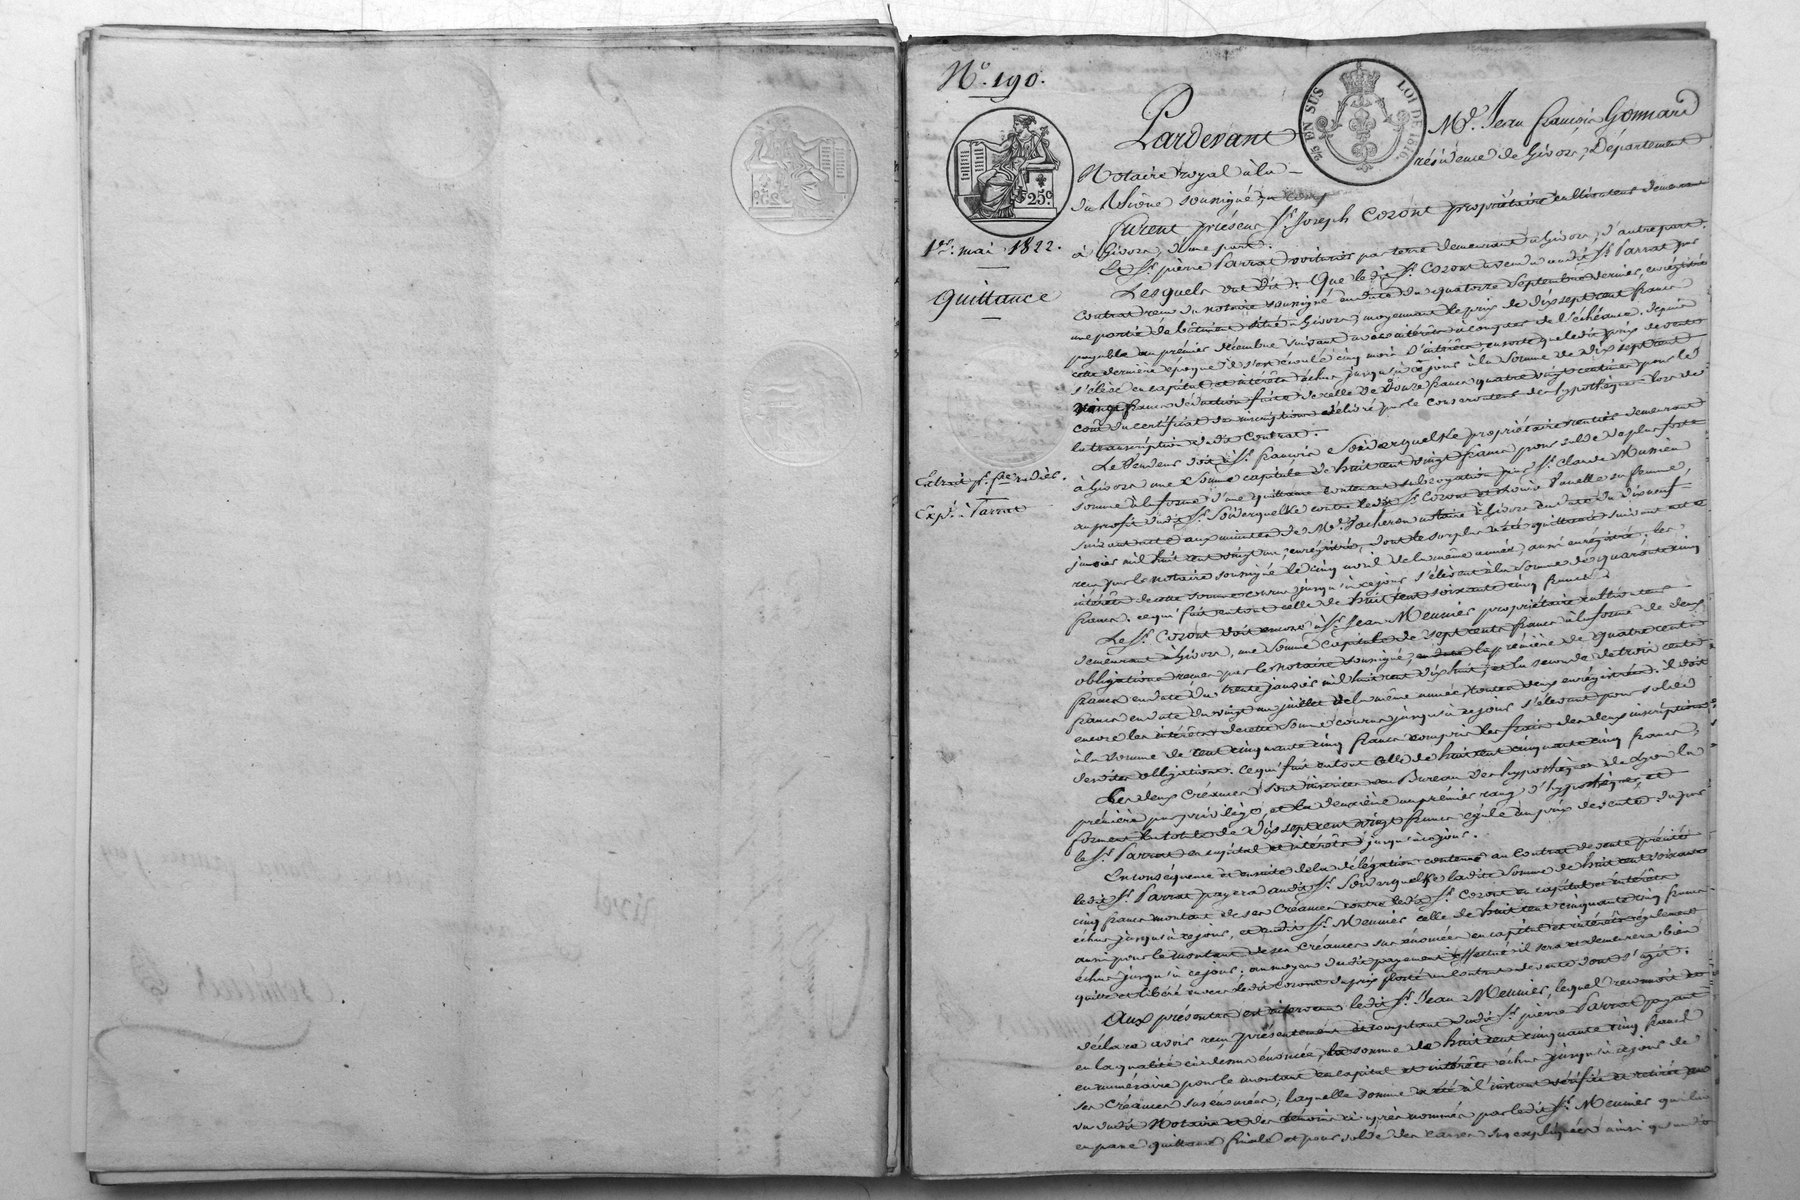 N.o 190.
25 EN SUS LOI DE 1816.
25c
1er. mai 1822.
quittance
Pardevant Me. Jean françois Gonnard
Notaire royal à la résidence de Givors, Département
du Rhône soussigné,
furent présens sr. Joseph Coront propriétaire cultivateur demeurant
à Givors, d'une part.
Et sr. pierre Parrat voiturier par terre demeurant à Givors, d'autre part.
Lesquels ont dit: Que ledit sr. Coront a vendu audit sr. Parrat par
contrat reçu du notaire soussigné en date du quatorze Septembre dernier, enregistré
une partie de bâtiment situé à Givors, moyennant le prix de dix sept cent francs
payable au premier décembre suivant avec intérêts à compter de l'échéance. depuis
cette dernière époque il s'est écoulé cinq mois d'intérêts, ensorte que ledit prix de vente
s'élève en capital et intérêts échus jusqu'à ce jour à la somme de dix sept cent
vingt francs déduction faite de celle de douze francs quatre vingt centimes pour le
coût du certificat des inscriptions délivré par le conservateur des hypothèques lors de
la transcription dudit Contrat.
Le Vendeur doit à sr. françois Souderquelke propriétaire rentier demeurant
à Givors une somme capitale de huit cent vingt francs pour solde de plus forte
somme à la forme d'une quittance contenant subrogation par sr. Claude Musnier
au profit dudit sr. Souderquelke contre ledit sr. Coront et sa femme,
suivant acte aux minutes de Me. Jacheron notaire à Givors en date du dix neuf
janvier mil huit cent vingt un, enregistré, dont le surplus a été quittancé suivant acte
reçu par le notaire soussigné le cinq avril de la même année, aussi enregistré. les
intérêts de cette somme courus jusqu'à ce jour s'élèvent à la somme de quarante cinq
francs. ce qui fait en tout celle de huit cent soixante cinq francs.
Le sr. Coront doit encore à sr. Jean Meunier propriétaire cultivateur
demeurant à Givors, une somme capitale de sept cents francs à la forme de deux
obligations reçues par le notaire soussigné, la première de quatre cents
francs en date du trente janvier mil huit cent dix huit, et la seconde de trois cents
francs en date du vingt un juillet de la même année, toutes deux enregistrées. il doit
encore les intérêts de cette somme courus jusqu'à ce jour s'élevant pour solde
à la somme de cent cinquante cinq francs compris les frais des deux inscriptions
desdites obligations. ce qui fait en tout celle de huit cent cinquante cinq francs,
Les deux Créances sont inscrites au Bureau des hypothèques de Lyon la
première par privilège, et la deuxième au premier rang d'hypothèques, et
forment le total de dix sept cent vingt francs égale au prix de vente dû par
le sr. Parrat en capital et intérêts jusqu'à ce jour.
En conséquence et ensuite de la délégation contenue au Contrat de vente précité
ledit sr. Parrat payera audit sr. Souderquelke ladite somme de huit cent soixante
cinq francs montant de ses créances contre ledit sr. Coront en capital et intérêts
échus jusqu'à ce jour, et audit sr. Meunier celle de huit cent cinquante cinq francs
aussi pour le montant de ses créances sus énoncées en capital et intérêts également
échus jusqu'à ce jour; au moyen dudit payement effectué il sera et demeurera bien
quitte et libéré envers ledit Coront du prix porté au Contrat de vente dont s'agit.
Aux présentes est intervenu ledit sr. Jean Meunier, lequel reconnoit et
déclare avoir reçu présentement et comptant dudit sr. pierre Parrat payant
en la qualité ci dessus énoncée, la somme de huit cent cinquante cinq francs
en numéraire pour le montant en capital et intérêts échus jusqu'à ce jour de
ses créances sus énoncées, laquelle somme a été à l'instant vérifiée et retirée au
vu dudit Notaire et des témoins ci après nommés par ledit sr. Meunier qui lui
en passe quittance finale et pour solde des causes sus expliquées ainsi qu'
Exp.n à Parrat